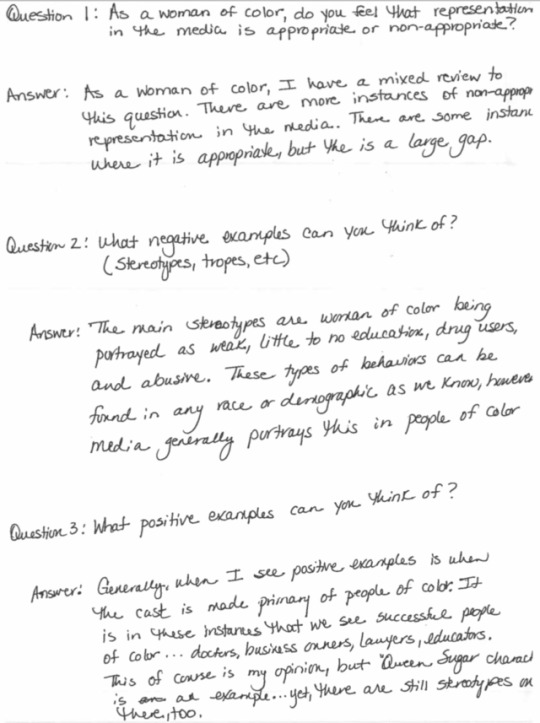 Question 1: As a woman of color, do you feel that representation
in the media is appropriate or non-appropriate?
Answer: As a woman of color, I have a mixed review to
this question. There are more instances of non-approp
representation in the media. There are some instanc
where it is appropriate, but the is a large gap.
Question 2: What negative examples can you think of?
(Stereotypes, tropes, etc)
Answer: The main stereotypes are woman of color being
portrayed as weak, little to no education, drug users,
and abusive. These types of behaviors can be
found in any race or demographic as we know, however
media generally portrays this in people of color
Question 3: What positive examples can you think of?
Answer: Generally, when I see positive examples is when
the cast is made primary of people of color. It
is in these instances that we see successful people
of color... doctors, business owners, lawyers, educators.
This of course is my opinion, but "Queen Sugar charact
is an example... yet, there are still stereotypes on
there, too.